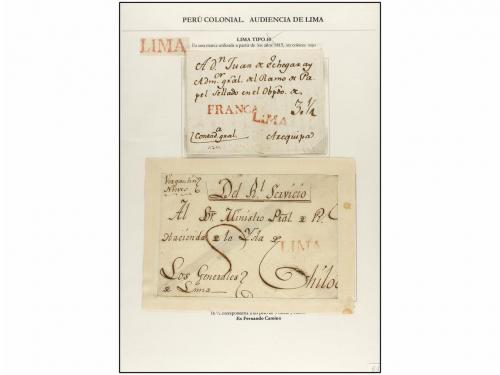 PERÚ COLONIAL. AUDIENCIA DE LIMA
LIMA TIPO 10
Es una marca utilizada a partir de los años 1815, en colores rojo
LIMA
A Dn Juan de Echegaray
Admor gral. del Ramo de Pa
pel Sellado en el Obpdo. de
3½
FRANCA LIMA
Contad gral.
Arequipa
Del Rl. Servicio
Al Sr. Ministro Pral. de Rl.
Hacienda de la Ysla de
LIMA
Chiloe
Los Generales
de Lima
Ex Fernando Camino